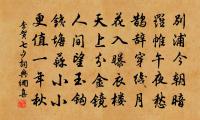 別浦今朝暗
羅帷午夜愁
鵲辞穿线月
花入曝衣楼
天上分金鏡
人間望玉鈎
錢塘蘇小小
更值一年秋
李賀七夕詞典網